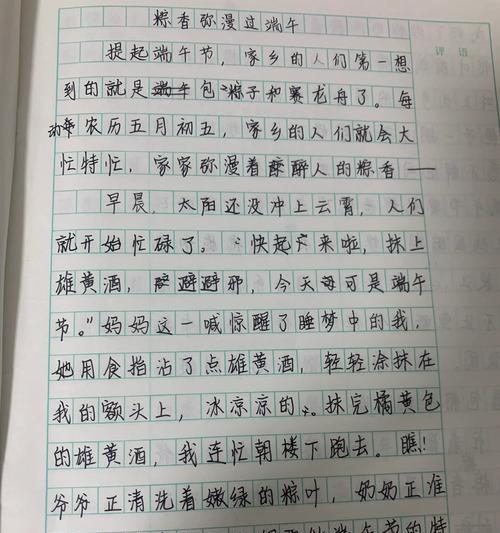 粽香弥漫过端午
评语
提起端午节，家乡的人们第一想
到的就是端午包粽子和赛龙舟了。每
年农历五月初五，家乡的人们就会大
忙特忙，家家弥漫着醉人的粽香——
早晨，太阳还没冲上云霄，人们
就开始忙碌了。“快起来啦，抹上
雄黄酒，避避邪，今天可是端午
节。”妈妈这一喊惊醒了睡梦中的我，
她用食指沾了点雄黄酒，轻轻涂抹在
我的额头上，冰凉凉的。抹完橘黄色
的雄黄酒，我连忙朝楼下跑去。瞧！
爷爷正清洗着嫩绿的粽叶，奶奶正准
节的特